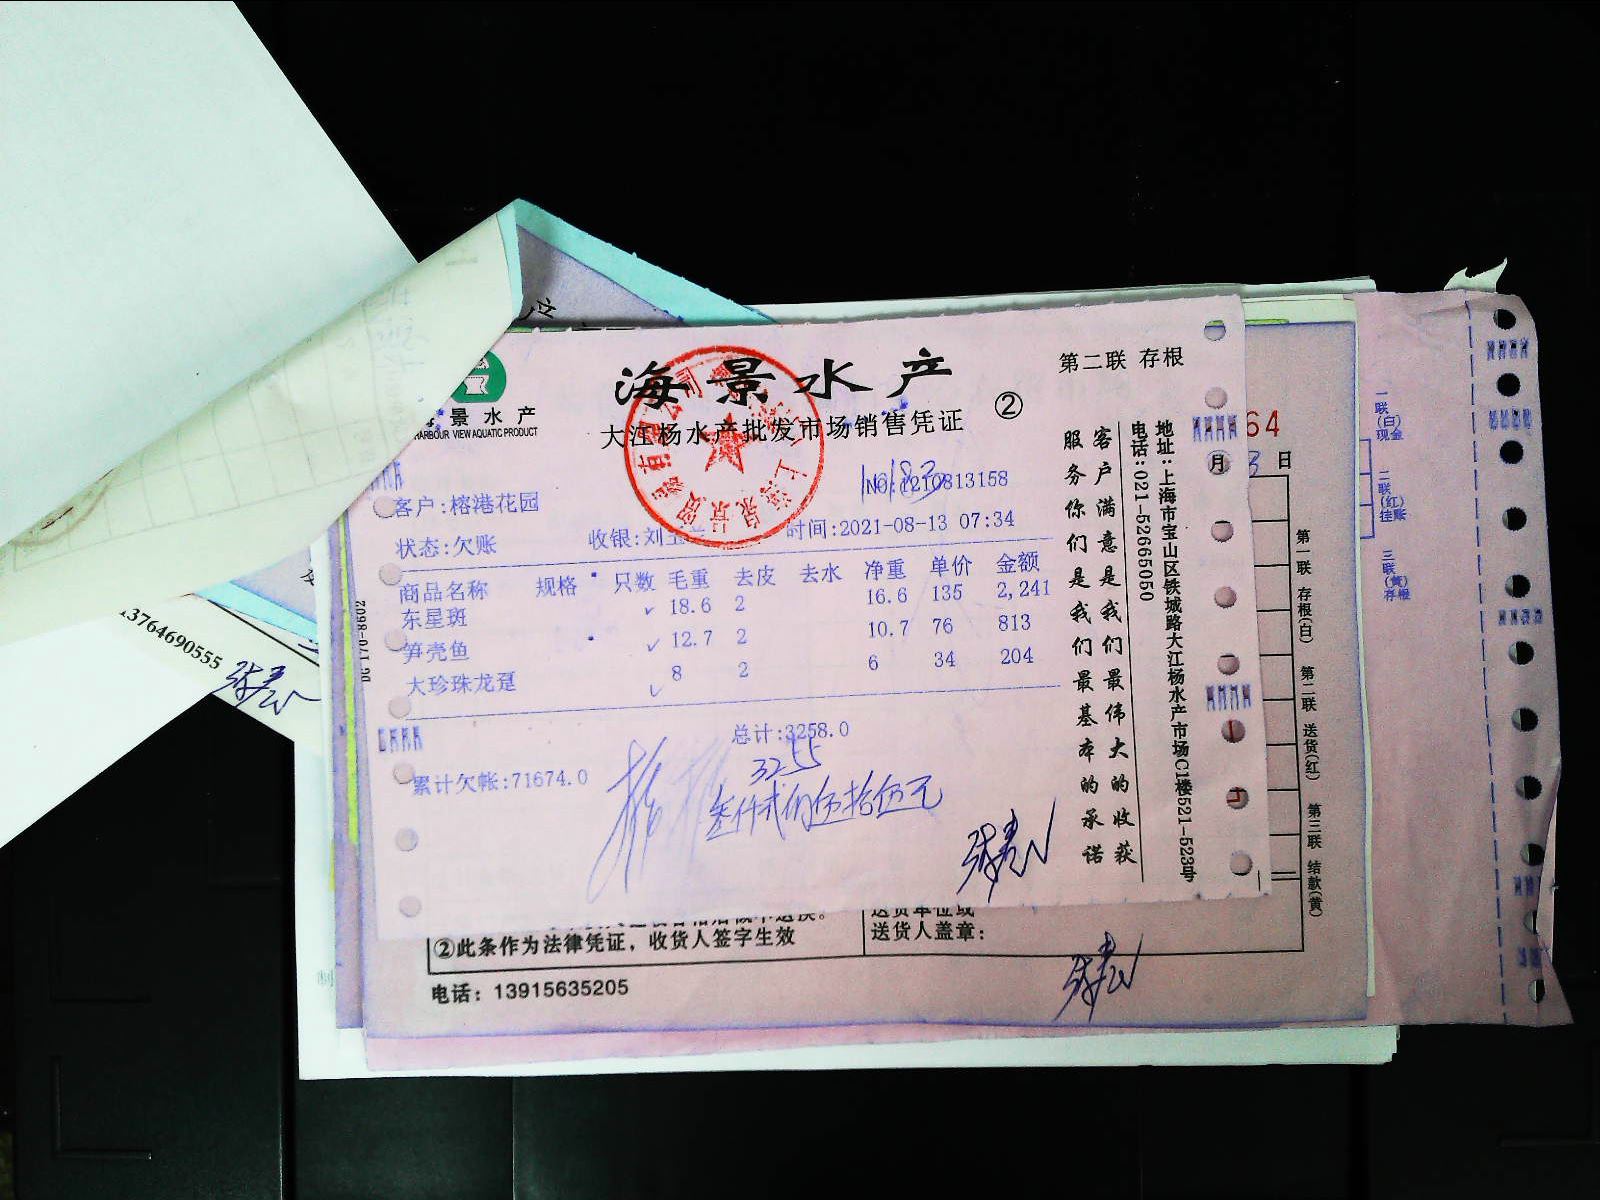 海景水产
第二联 存根
②
景水产
HARBOUR VIEW AQUATIC PRODUCT
大江杨水产批发市场销售凭证
64
月 3 日
客户:榕港花园
NO:1210813158
状态:欠账
收银:刘
时间:2021-08-13 07:34
商品名称 规格 只数 毛重 去皮 去水 净重 单价 金额
东星斑 18.6 2 16.6 135 2,241
笋壳鱼 12.7 2 10.7 76 813
大珍珠龙趸 8 2 6 34 204
总计:3258.0
3255
累计欠帐:71674.0
叁仟贰佰伍拾伍元
客户满意是我们最伟大的收获
服务你们是我们最基本的承诺
地址:上海市宝山区铁城路大江杨水产市场C1楼521-523号
电话:021-52665050
第一联 存根(白) 第二联 送货(红) 第三联 结款(黄)
一联(白)现金
二联(红)挂账
三联(黄)存根
13764690555
②此条作为法律凭证，收货人签字生效
送货单位或
送货人盖章:
电话: 13915635205